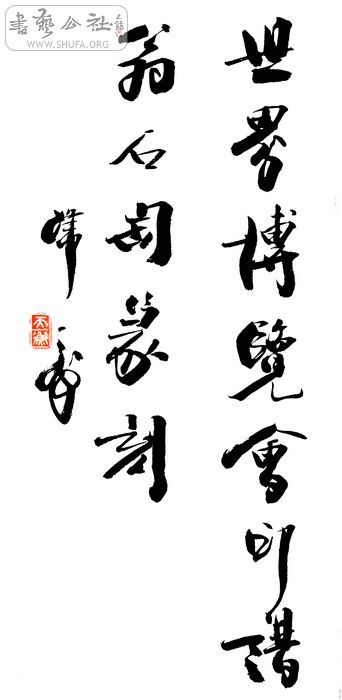 書藝公社
WWW.SHUFA.ORG
世界博覽會印譜
翁石匋篆刻
天衡